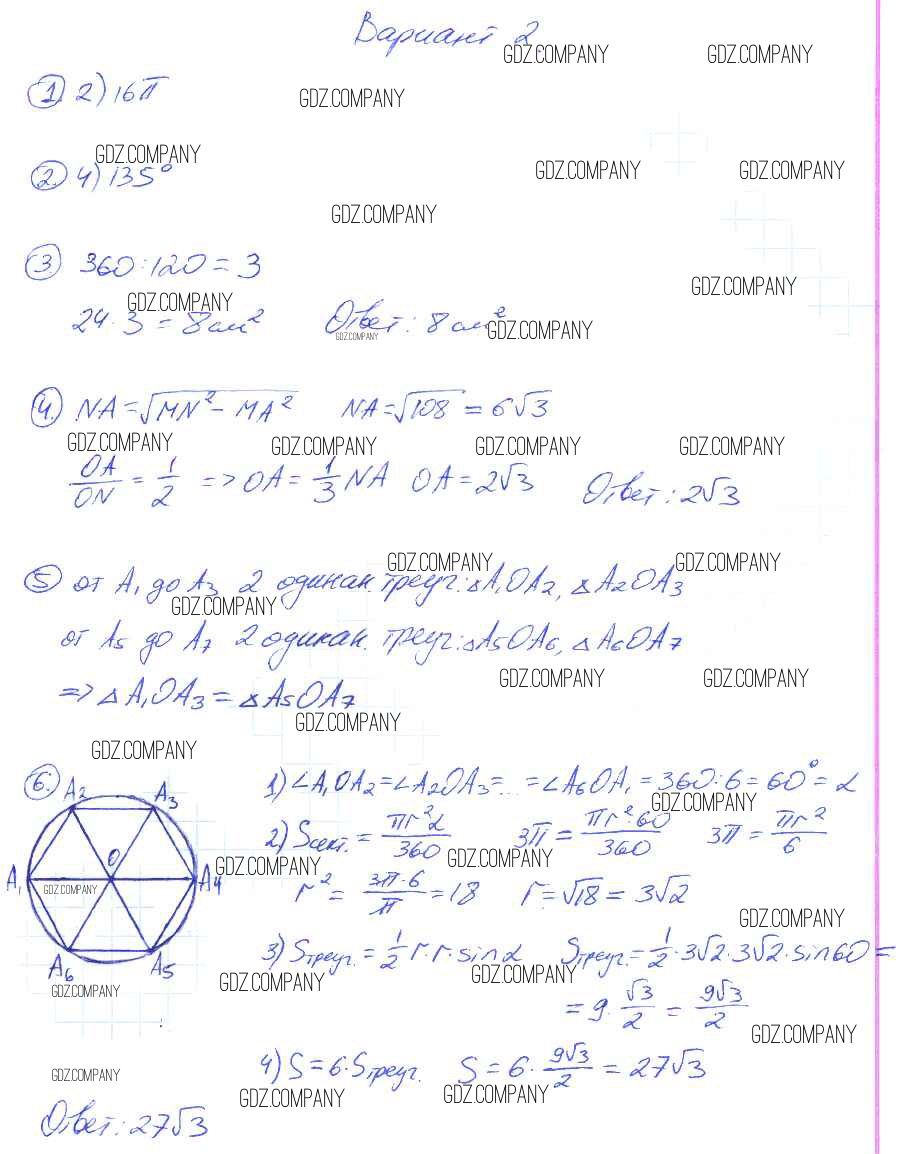 Вариант 2
GDZ.COMPANY GDZ.COMPANY
① 2) 16π
GDZ.COMPANY
GDZ.COMPANY
② 4) 135°
GDZ.COMPANY GDZ.COMPANY
GDZ.COMPANY
③ 360:120 = 3
GDZ.COMPANY
GDZ.COMPANY
24:3 = 8 см² Ответ: 8 см²
GDZ.COMPANY
GDZ.COMPANY
④. NA = √(MN² - MA²) NA = √108 = 6√3
GDZ.COMPANY GDZ.COMPANY GDZ.COMPANY GDZ.COMPANY
OA/ON = 1/2 => OA = 1/3 NA OA = 2√3 Ответ: 2√3
GDZ.COMPANY GDZ.COMPANY
⑤ от A₁ до A₃ 2 одинак. треуг: △A₁OA₂, △A₂OA₃
GDZ.COMPANY
от A₅ до A₇ 2 одинак. треуг: △A₅OA₆, △A₆OA₇
GDZ.COMPANY GDZ.COMPANY
=> △A₁OA₃ = △A₅OA₇
GDZ.COMPANY
GDZ.COMPANY
⑥.
A₂ A₃
O
A₁ A₄
GDZ.COMPANY
A₆ A₅
GDZ.COMPANY
1) ∠A₁OA₂ = ∠A₂OA₃ = ... = ∠A₆OA₁ = 360:6 = 60° = α
GDZ.COMPANY
2) Sсект. = πr²α/360 3π = πr²·60/360 3π = πr²/6
GDZ.COMPANY GDZ.COMPANY
r² = 3π·6/π = 18 r = √18 = 3√2
GDZ.COMPANY
3) Sтреуг. = 1/2 r·r·sinα Sтреуг. = 1/2·3√2·3√2·sin60 =
GDZ.COMPANY GDZ.COMPANY
= 9·√3/2 = 9√3/2
GDZ.COMPANY
4) S = 6·Sтреуг. S = 6·9√3/2 = 27√3
GDZ.COMPANY
GDZ.COMPANY GDZ.COMPANY
Ответ: 27√3